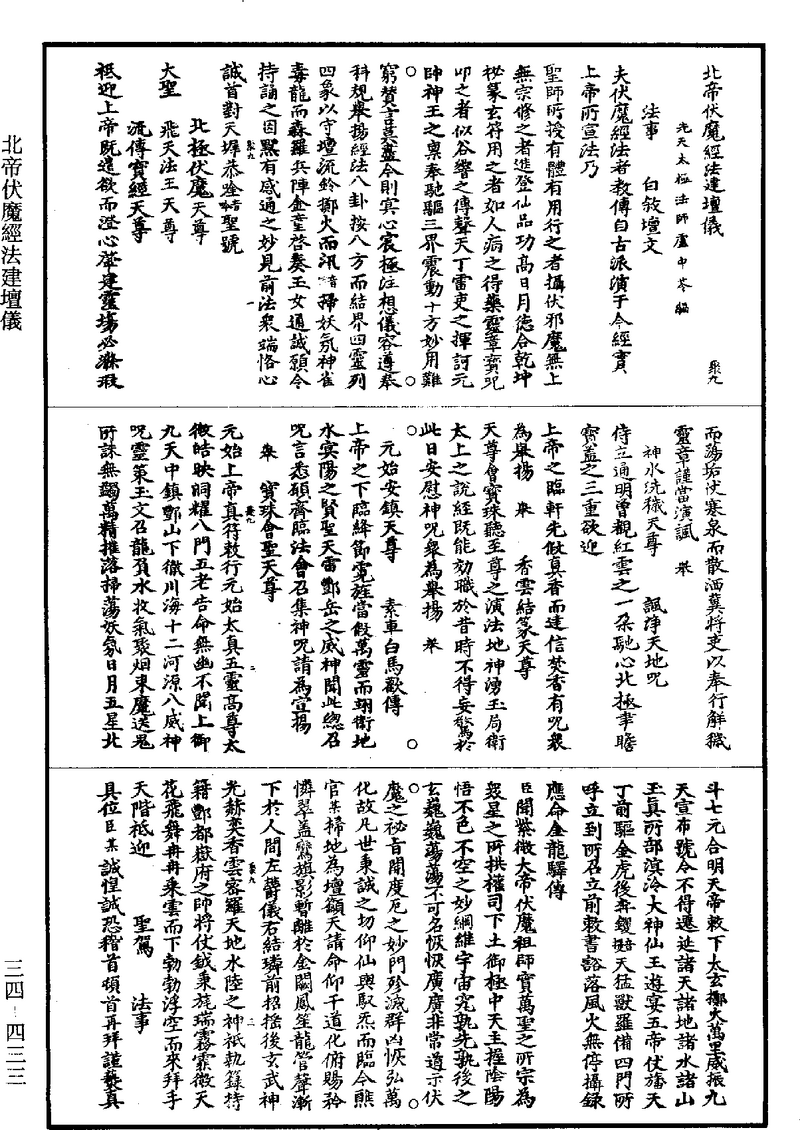 北帝伏魔經法建壇儀
先天太極法師盧中苓編
法事　白敘壇文
夫伏魔經法者教傳自古派演于今經寶
上帝所宣法乃
聖師所授有體有用行之者攝伏邪魔無上
無宗修之者進登仙品功高日月德合乾坤
祕篆玄符用之者如人病之得藥靈章寶呪
叩之者似谷響之傳聲天丁雷吏之揮訶元
帥神王之稟奉馳驅三界震動十方妙用難
窮贊言莫盡今則冥心宸極注想儀容遵奉
科規舉揚經法八卦按八方而結界四靈列
四象以守壇流鈴擲火而汛掃妖氛神雀
毒龍而森羅兵陣金童啓奏玉女通誠願令
持誦之因默有感通之妙見前法衆端恪心
誠首對天墀恭唸聖號
北極伏魔天尊
大聖　飛天法王天尊
流傳寶經天尊
祗迎上帝既遣欲而澄心肇建靈場必滌瑕
而蕩垢伏寒泉而散洒冀將吏以奉行解穢
靈章謹當演諷　舉
神水洗穢天尊　諷淨天地呪
侍立通明曾觀紅雲之一朶馳心北極聿瞻
寶蓋之三重欲迎
上帝之臨軒先假真香而達信焚香有呪衆
為舉揚　舉　香雲結篆天尊
天尊會寶珠聽至尊之演法地神湧玉局衛
太上之說經既能効職於昔時不得妄驚於
此日安慰神呪衆為舉揚　舉
元始安鎮天尊　素車白馬歡傳
上帝之下臨絳節霓旌當假萬靈而翊衛地
水宾陽之賢聖天雷酆岳之威神聞此總召
呪言悉願齊臨法會召集神呪請為宣揚
舉　寶珠會聖天尊
元始上帝真符敕行元始太真五靈高尊太
微皓映洞耀八門五老告命無幽不聞上御
九天中鎮酆山下徹川海十二河源八威神
呪靈策玉文召龍負水收氣聚烟束魔送鬼
所誅無蠲萬精摧落掃蕩妖氛日月五星北
斗七元合明天帝敕下太玄擲火萬里威振九
天宣布號令不得遷延諸天諸地諸水諸山
玉真所部滇泠大神仙王遊宴五帝仗旛天
丁前驅金虎後奔鑁天猛獸羅備四門所
呼立到所召立前敕書豁落風火無停攝録
應命金龍驛傳
臣聞紫微大帝伏魔祖師寶萬聖之所宗為
衆星之所拱權司下土御極中天主握陰陽
悟不色不空之妙綱維宇宙究孰先孰後之
玄巍巍蕩蕩不可名恢恢廣廣非常道示伏
魔之祕旨開度厄之妙門殄滅群凶恢弘萬
化故凡世秉誠之切仰仙輿馭炁而臨今熊
官某掃地為壇籲天請命仰干道化俯賜矜
憐翠蓋鸞旗影暫離於金闕鳳笙龍管聲漸
下於人間左鬱儀右結璘前招搖後玄武神
光赫奕香雲密羅天地水陸之神祇執籙持
籍酆都嶽府之帥將仗鉞秉旄瑞霧霏微天
花飛舞冉冉乘雲而下勃勃浮空而來拜手
天階祗迎　聖駕　法事
具位臣某誠惶誠恐稽首頓首再拜謹炷真
北帝伏魔經法建壇儀
三四－四三三